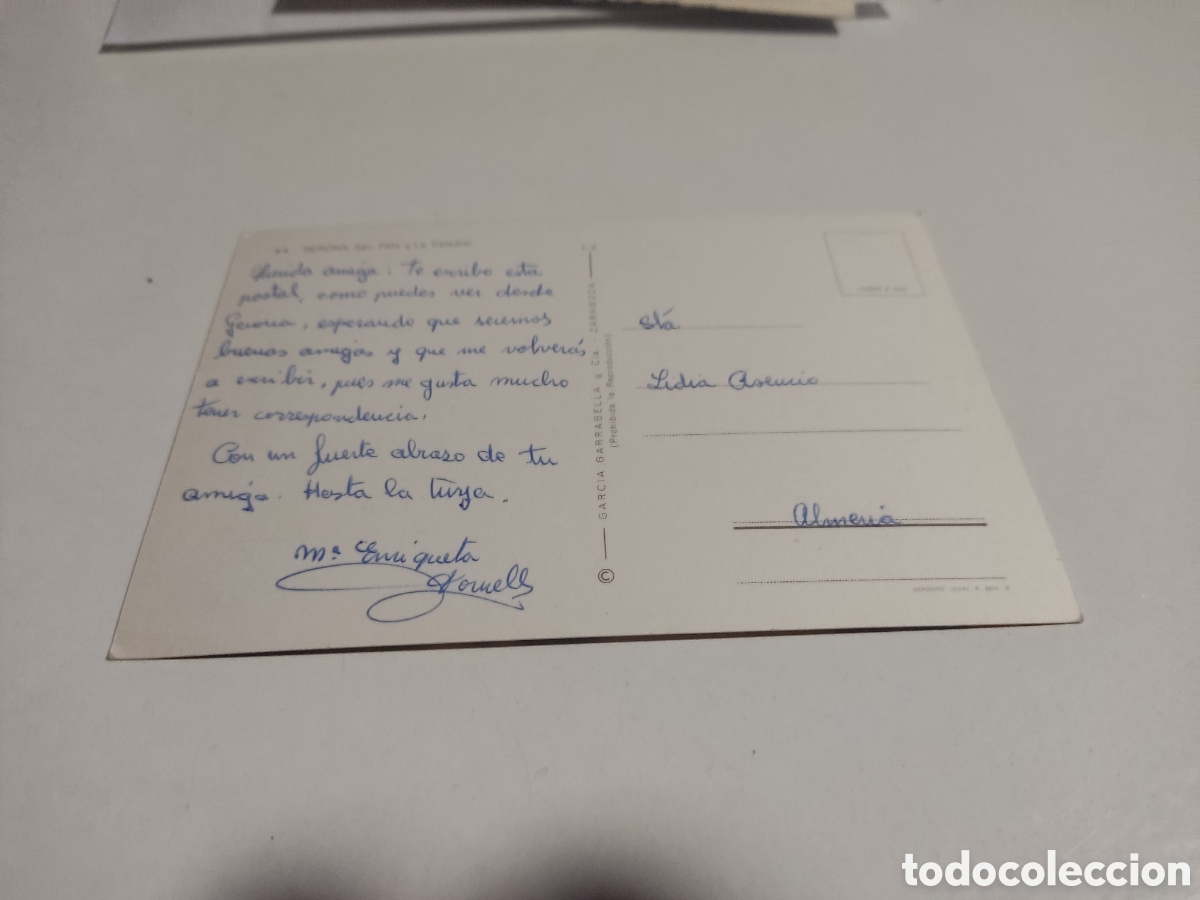 Querida amiga: Te escribo esta
postal, como puedes ver desde
Gerona, esperando que seremos
buenas amigas y que me volverás
a escribir, pues me gusta mucho
tener correspondencia.
Con un fuerte abrazo de tu
amiga. Hasta la tuya.
Mª Enriqueta
© GARCIA GARRABELLA y Cia. - ZARAGOZA
(Prohibida la Reproducción)
Stá
Lidia Asencio
Almeria
todocoleccion